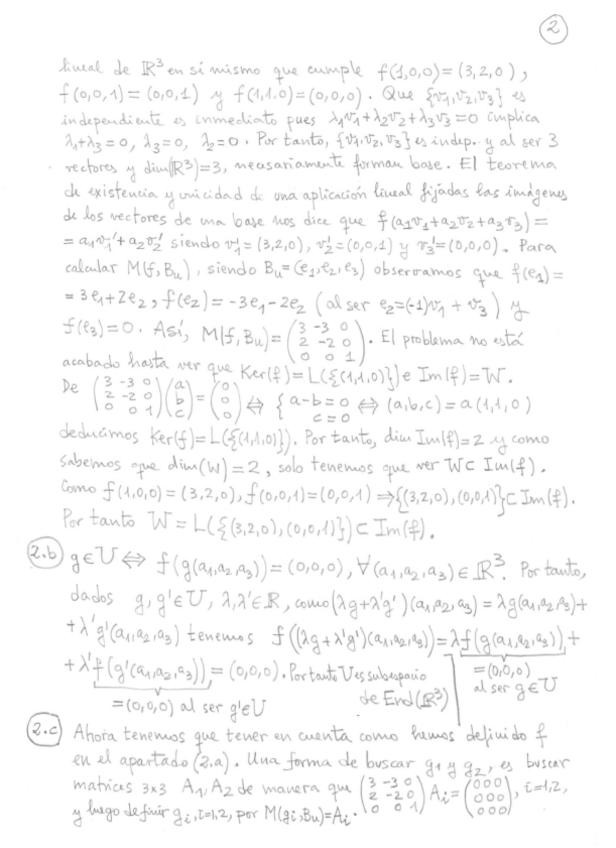 2
lineal de ℝ³ en sí mismo que cumple f(1,0,0)=(3,2,0),
f(0,0,1)=(0,0,1) y f(1,1,0)=(0,0,0). Que {v₁,v₂,v₃} es
independiente es inmediato pues λ₁v₁+λ₂v₂+λ₃v₃=0 implica
λ₁+λ₃=0, λ₃=0, λ₂=0. Por tanto, {v₁,v₂,v₃} es indep. y al ser 3
vectores y dim(ℝ³)=3, necesariamente forman base. El teorema
de existencia y unicidad de una aplicación lineal fijadas las imágenes
de los vectores de una base nos dice que f(a₁v₁+a₂v₂+a₃v₃)=
=a₁v₁'+a₂v₂' siendo v₁'=(3,2,0), v₂'=(0,0,1) y v₃'=(0,0,0). Para
calcular M(f,Bu), siendo Bu=(e₁,e₂,e₃) observamos que f(e₁)=
=3e₁+2e₂, f(e₂)=-3e₁-2e₂ (al ser e₂=(-1)v₁+v₃) y
f(e₃)=0. Así, M(f,Bu)=(3 -3 0 / 2 -2 0 / 0 0 1). El problema no está
acabado hasta ver que Ker(f)=L({(1,1,0)}) e Im(f)=W.
De (3 -3 0 / 2 -2 0 / 0 0 1)(a / b / c)=(0 / 0 / 0) ⇔ {a-b=0 / c=0 ⇔ (a,b,c)=a(1,1,0)
deducimos Ker(f)=L({(1,1,0)}). Por tanto, dim Im(f)=2 y como
sabemos que dim(W)=2, solo tenemos que ver W⊂Im(f).
Como f(1,0,0)=(3,2,0), f(0,0,1)=(0,0,1) ⇒ {(3,2,0),(0,0,1)}⊂Im(f).
Por tanto W=L({(3,2,0),(0,0,1)})⊂Im(f).
2.b g∈U ⇔ f(g(a₁,a₂,a₃))=(0,0,0), ∀(a₁,a₂,a₃)∈ℝ³. Por tanto,
dados g,g'∈U, λ,λ'∈ℝ, como (λg+λ'g')(a₁,a₂,a₃)=λg(a₁,a₂,a₃)+
+λ'g'(a₁,a₂,a₃) tenemos f((λg+λ'g')(a₁,a₂,a₃))=λf(g(a₁,a₂,a₃))+
+λ'f(g'(a₁,a₂,a₃))=(0,0,0). Por tanto U es subespacio
de End(ℝ³)
=(0,0,0)
al ser g∈U
=(0,0,0) al ser g'∈U
2.c Ahora tenemos que tener en cuenta como hemos definido f
en el apartado (2.a). Una forma de buscar g₁ y g₂, es buscar
matrices 3×3 A₁,A₂ de manera que (3 -3 0 / 2 -2 0 / 0 0 1)Aᵢ=(000 / 000 / 000), i=1,2,
y luego definir gᵢ, i=1,2, por M(gᵢ,Bu)=Aᵢ.